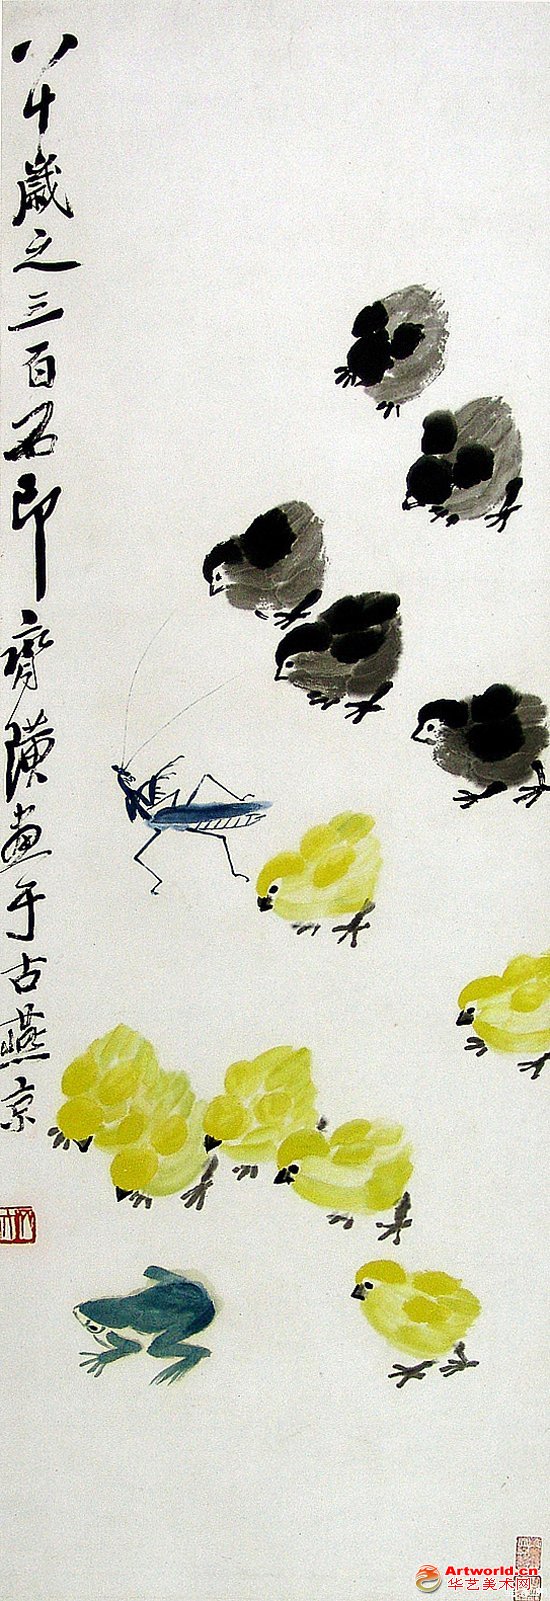 八十歲之三百石印齊璜畫于古燕京
Artworld.cn
华艺美术网